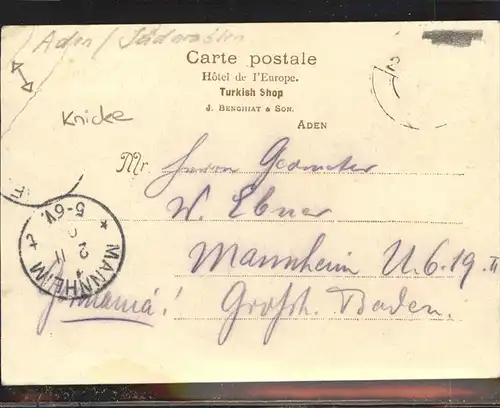 Aden / Südarabien
Carte postale
Hôtel de l'Europe.
Turkish Shop
J. BENGHIAT & SON.
ADEN
Knicke
Mr. Herrn Geometer
W. Ebner
Mannheim U. 6. 19. II
Grossh. Baden.
Germania!
MANNHEIM
5-6V.